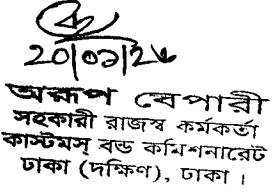 ২০/০১/২৬
অরূপ বেপারী
সহকারী রাজস্ব কর্মকর্তা
কাস্টমস্ বন্ড কমিশনারেট
ঢাকা (দক্ষিণ), ঢাকা ।